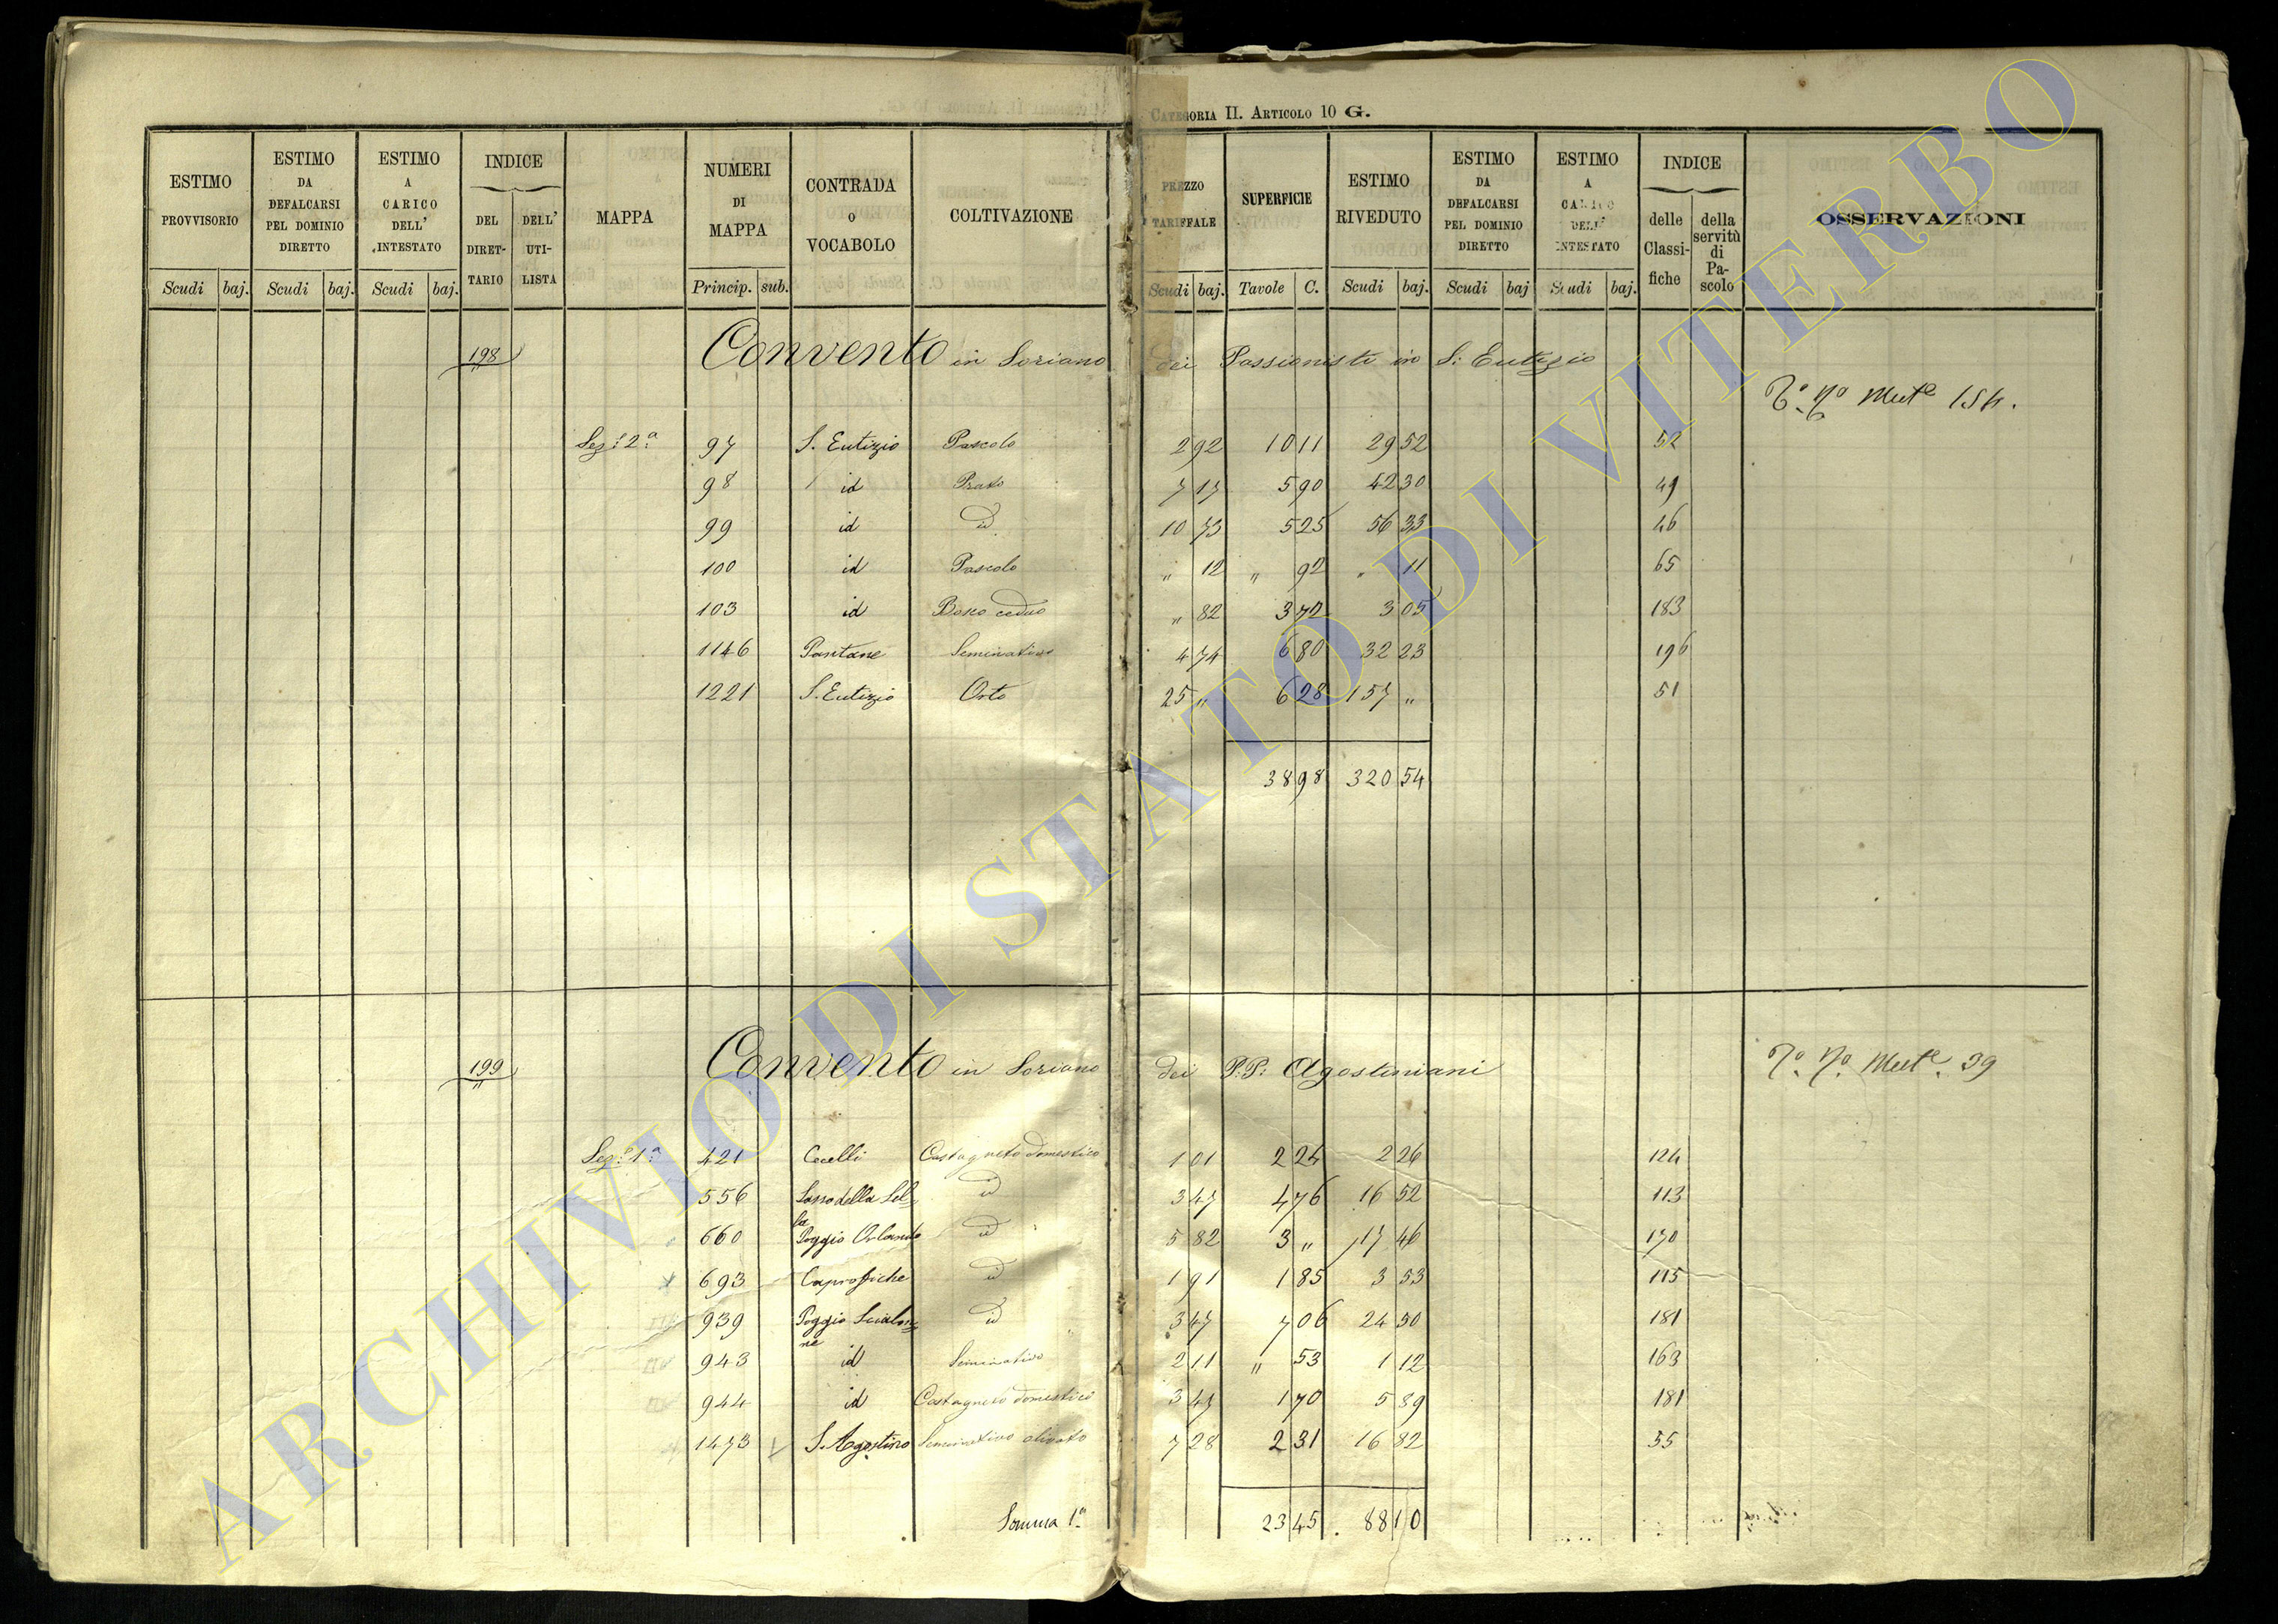 CATEGORIA II. ARTICOLO 10 G.
ESTIMO PROVVISORIO Scudi baj.
ESTIMO DA DEFALCARSI PEL DOMINIO DIRETTO Scudi baj.
ESTIMO A CARICO DELL' INTESTATO Scudi baj.
INDICE DEL DIRETTARIO DELL' UTILISTA
MAPPA
NUMERI DI MAPPA Princip. sub.
CONTRADA O VOCABOLO
COLTIVAZIONE
PREZZO TARIFFALE Scudi baj.
SUPERFICIE Tavole C.
ESTIMO RIVEDUTO Scudi baj.
ESTIMO DA DEFALCARSI PEL DOMINIO DIRETTO Scudi baj
ESTIMO A CARICO DELL' INTESTATO Scudi baj.
INDICE delle Classifiche della servitù di Pascolo
OSSERVAZIONI
198 Convento in Soriano dei Passionisti in S. Eutizio
Mut.e 154.
Sez. 2a 97 S. Eutizio Pascolo 2 92 10 11 29 52 52
98 id Prato 7 17 5 90 42 30 49
99 id id 10 73 5 25 56 33 46
100 id Pascolo " 12 " 92 " 11 65
103 id Bosco ceduo " 82 3 72 3 05 183
1146 Pantane Seminativo 4 74 6 80 32 23 196
1221 S. Eutizio Orto 25 " 6 28 157 " 51
38 98 320 54
199 Convento in Soriano dei P.P. Agostiniani
Mut.e 39
Sez. 1a 421 Cecelli Castagneto domestico 1 01 2 24 2 26 124
556 Sasso della Sella id 3 47 4 76 16 52 113
660 Poggio Orlando id 5 82 3 " 17 46 170
693 Caprofiche id 1 91 1 85 3 53 115
939 Poggio id 3 47 7 06 24 50 181
943 id Seminativo 2 11 " 53 1 12 163
944 id Castagneto domestico 3 47 1 70 5 89 181
1473 S. Agostino Seminativo olivato 7 28 2 31 16 82 55
Somma 1a 23 45 88 10
ARCHIVIO DI STATO DI VITERBO